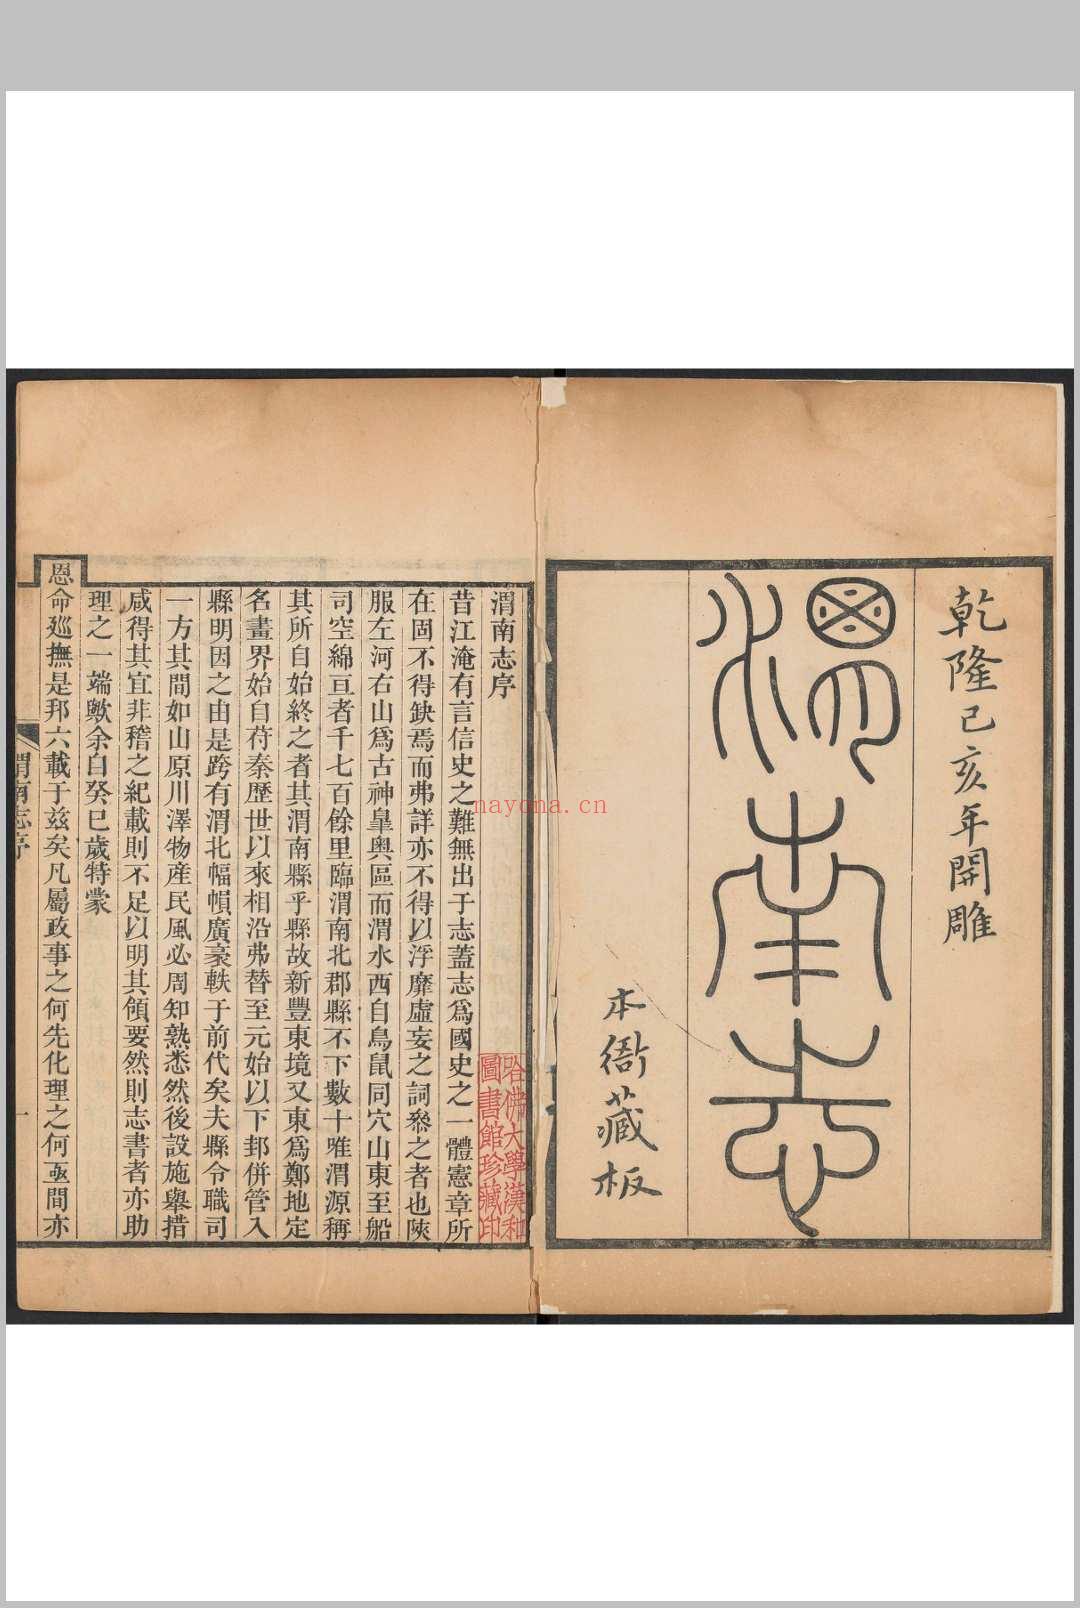 乾隆己亥年開雕
渭南志
本衙藏板
渭南志序
昔江淹有言信史之難無出于志蓋志爲國史之一體憲章所
在固不得缺焉而弗詳亦不得以浮靡虛妄之詞叅之者也陝
服左河右山爲古神臯奧區而渭水西自鳥鼠同穴山東至船
司空綿亘者千七百餘里臨渭南北郡縣不下數十唯渭源稱
其所自始終之者其渭南縣乎縣故新豐東境又東爲鄭地定
名畫界始自苻秦歷世以來相沿弗替至元始以下邽併管入
縣明因之由是跨有渭北幅幀廣袤軼于前代矣夫縣令職司
一方其間如山原川澤物産民風必周知熟悉然後設施舉措
咸得其宜非稽之紀載則不足以明其領要然則志書者亦助
理之一端歟余自癸巳歲特蒙
恩命廵撫是邦六載于兹矣凡屬政事之何先化理之何亟間亦
渭南志序
一
哈佛大學漢和
圖書館珍藏印
nayona.cn